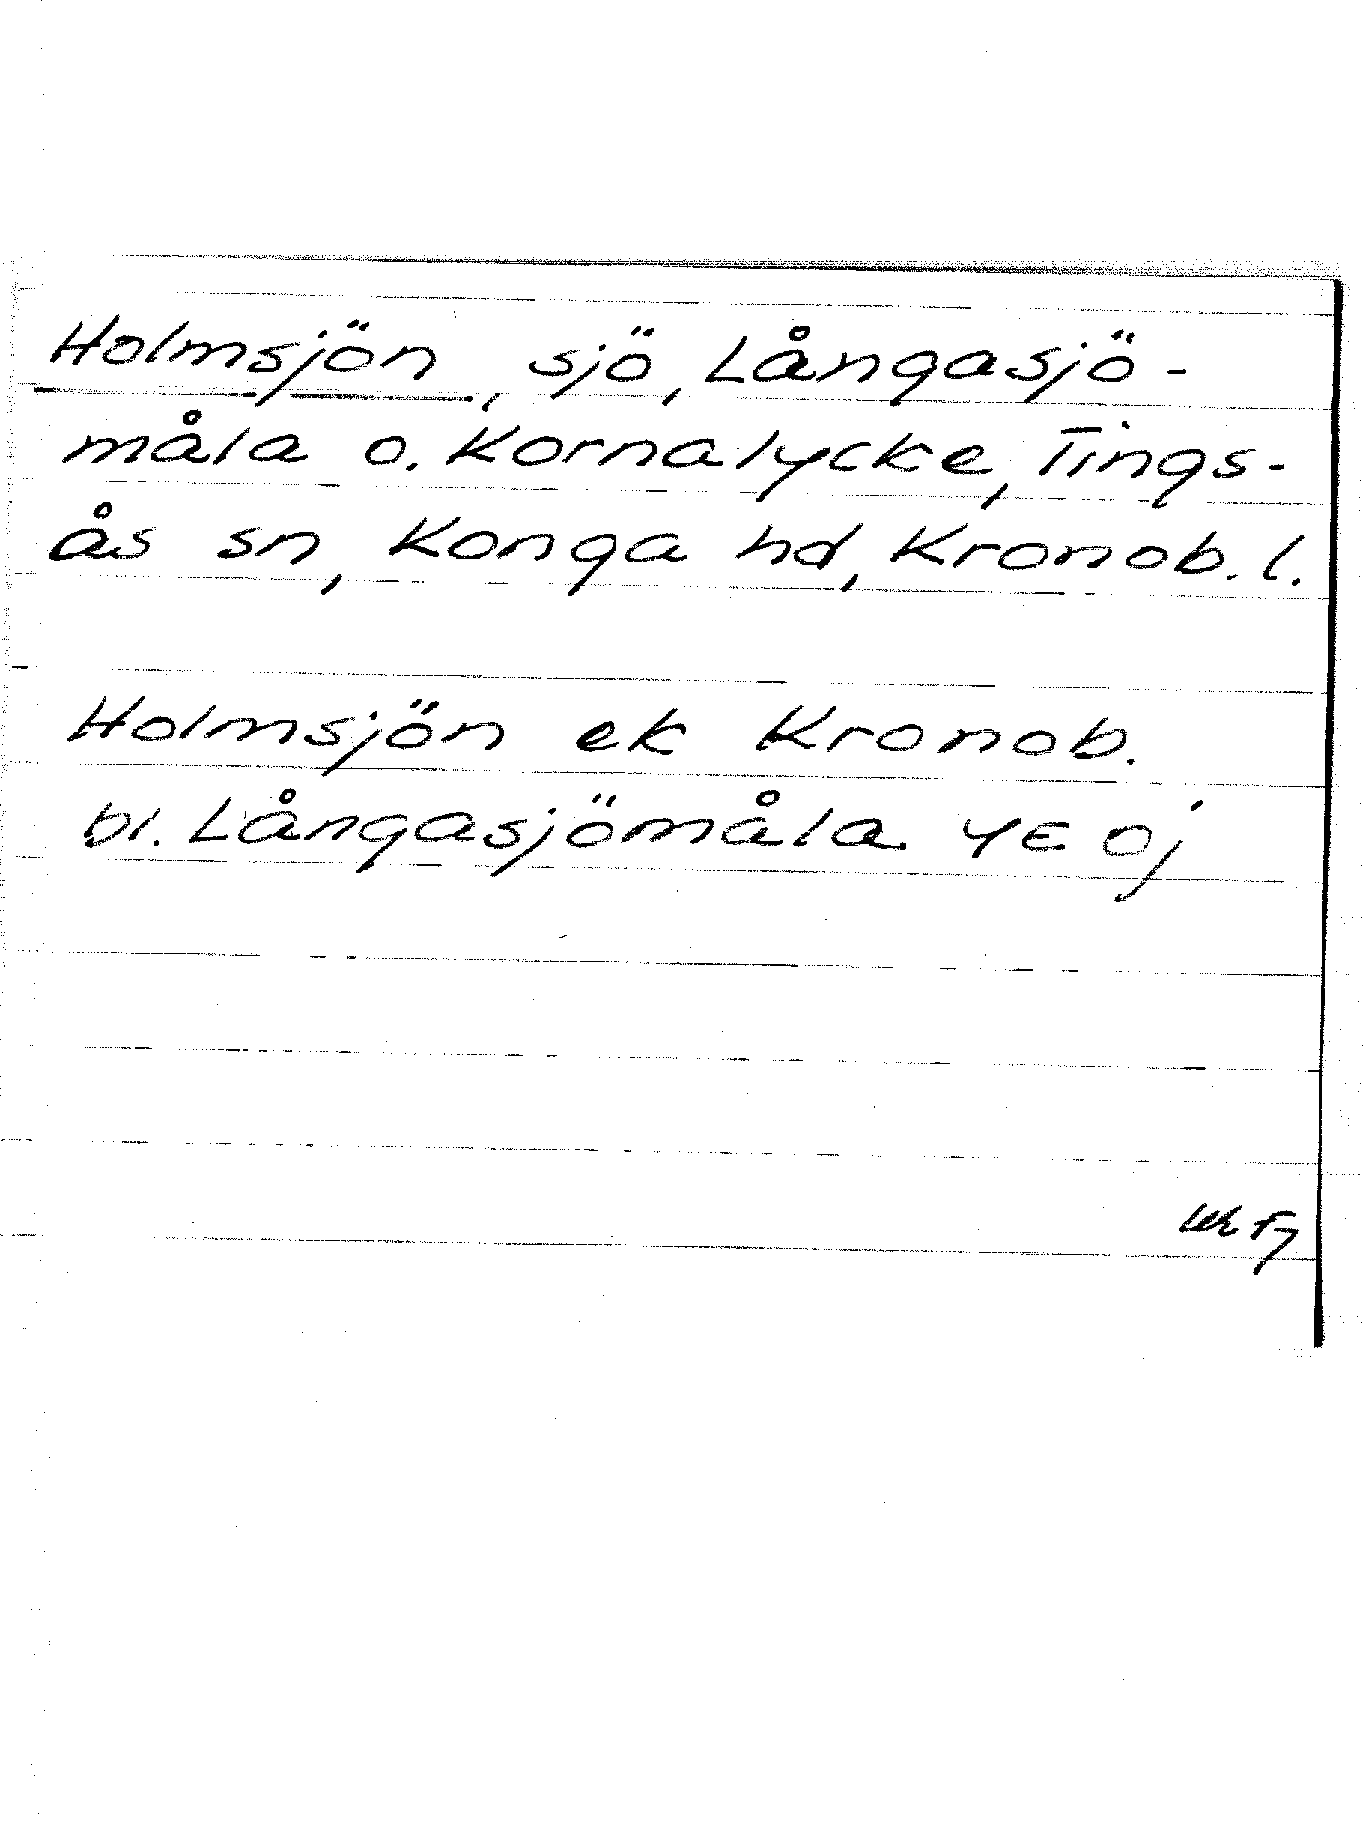 Holmsjön, sjö, Långasjö-
måla o. Kornalycke, Tings-
ås sn, Konga hd, Kronob. l.
Holmsjön ek Kronob.
bl. Långasjömåla 4E öj